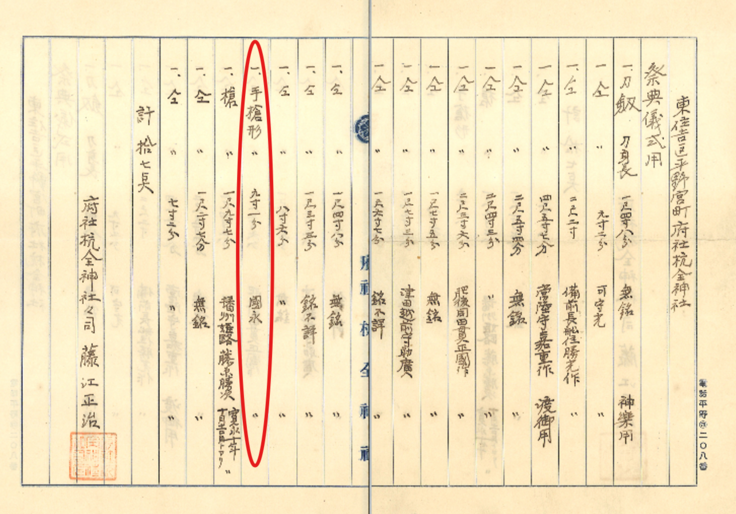 東住吉区平野宮町府社杭全神社
祭典儀式用
一、刀劔 刀身長 一尺四寸八分 無銘 神楽用
一、仝 〃 九寸二分 可定光 〃
一、仝 〃 二尺二寸 備前長船住勝光作 〃
一、仝 〃 四尺五寸七分 常陸守嘉重作 渡御用
一、仝 〃 二尺五寸四分 無銘 〃
一、仝 〃 二尺四寸三分 〃 〃
一、仝 〃 二尺三寸六分 肥後同田貫正國作 〃
一、仝 〃 一尺七寸五分 無銘 〃
一、仝 〃 一尺七寸二分 津田越前守助廣 〃
一、仝 〃 一尺六寸七分 銘不詳 〃
一、仝 〃 一尺四寸八分 無銘 〃
一、仝 〃 一尺三寸三分 銘不詳 〃
一、仝 〃 八寸六分 〃 〃
一、手槍形 〃 九寸一分 國永 〃
一、槍 〃 一尺九寸七分 播州姫路藤原勝次 寛永十年 〃
一、仝 〃 一尺二寸七分 無銘 〃
一、仝 〃 七寸二分 〃 〃
計 拾七
府社杭全神社々司 藤江正治
府社杭全神社
電話平野㊄二〇八番